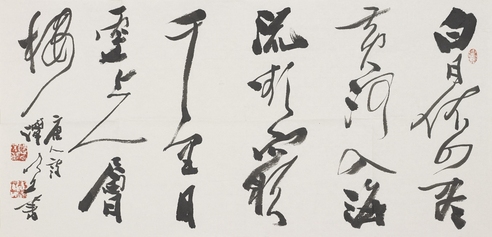 白日依山盡
黃河入海
流欲窮
千里目
更上一層
樓
唐人詩